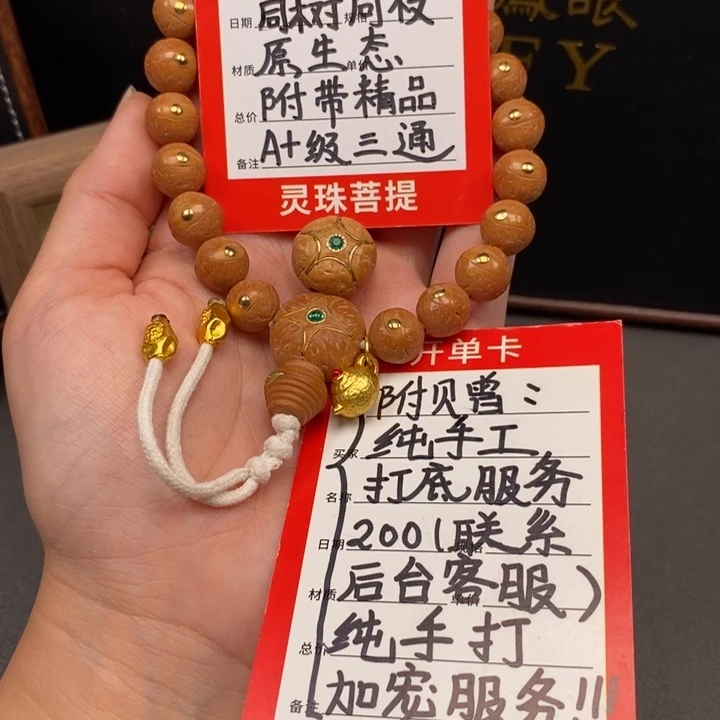 EY
日期 同树同枝 规格
材质 原生态 单价
总价 附带精品
备注 A+级三通
灵珠菩提
开单卡
附贝曾：
买家 纯手工
名称 打底服务
日期 200(联系 规格
材质 后台客服) 单价
总价 纯手打
备注 加宠服务!!!